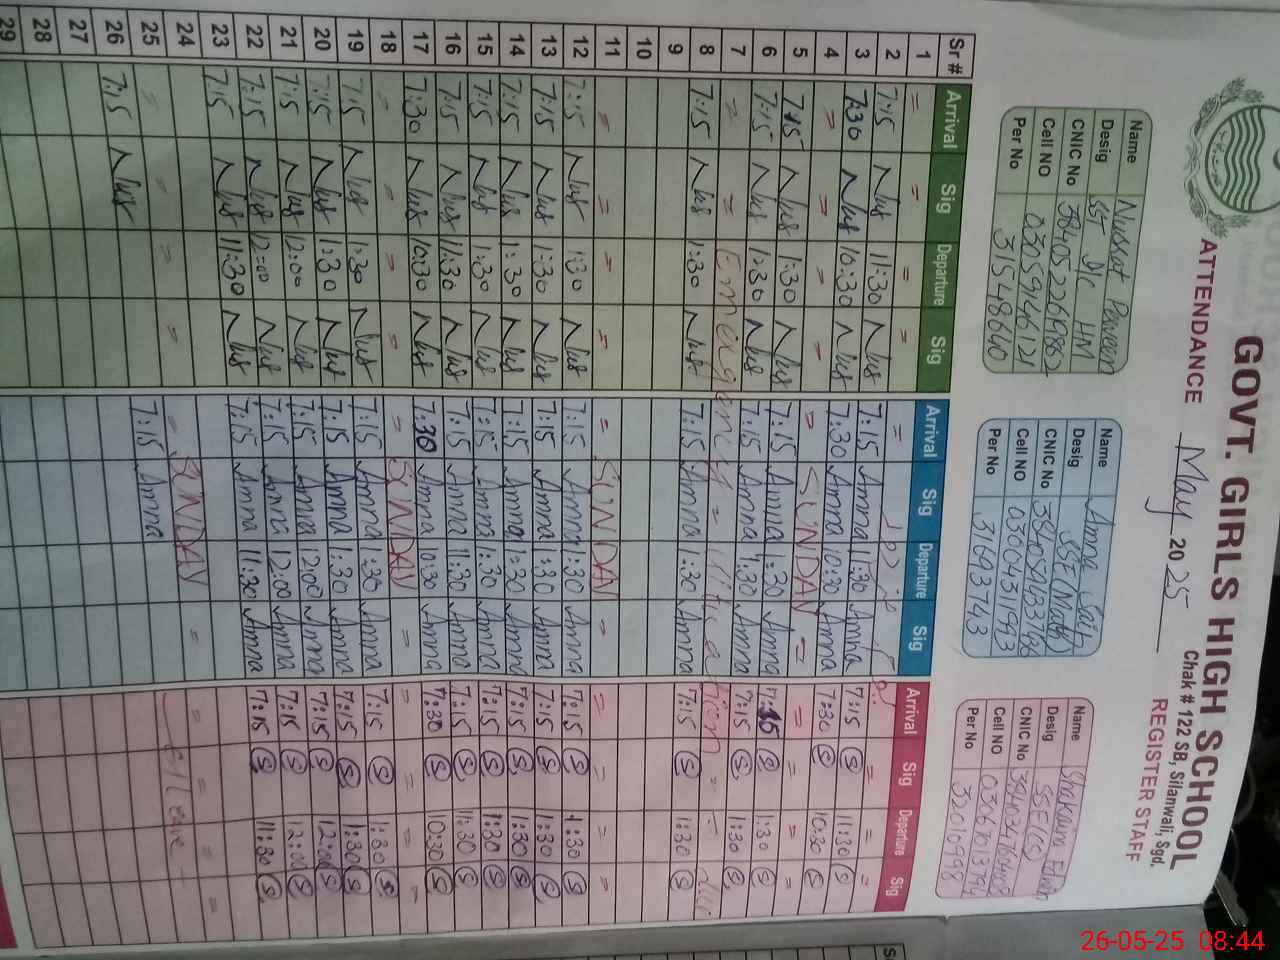 GOVT. GIRLS HIGH SCHOOL
Chak # 122 SB, Silanwali, Sgd.
ATTENDANCE May 2025 REGISTER STAFF
Name Nussat Parveen
Desig SST I/C HM
CNIC No
Cell NO
Per No 31548640
Name Amna Saif
Desig SSE (Math)
CNIC No
Cell NO 03004311993
Per No 31693743
Name Shakraim
Desig SSE (CS)
CNIC No
Cell NO
Per No 32010998
Sr # Arrival Sig Departure Sig Arrival Sig Departure Sig Arrival Sig Departure Sig
1 = = = = = = =
2 7:15 Nus 11:30 Nus 7:15 Amna 11:30 Amna 7:15 S 11:30 S
3 7:30 Nus 10:30 Nus 7:30 Amna 10:30 Amna 7:30 S 10:30 S
4 = = = = = SUNDAY = = = = =
5 7:15 Nus 1:30 Nus 7:15 Amna 1:30 Amna 7:15 S 1:30 S
6 7:15 Nus 1:30 Nus 7:15 Amna 1:30 Amna 7:15 S 1:30 S
7 = = Emergency =
8 7:15 Nus 1:30 Nus 7:15 Amna 1:30 Amna 7:15 S 1:30 S
9
10
11 = = = = = SUNDAY = = = = =
12 7:15 Nus 1:30 Nus 7:15 Amna 1:30 Amna 7:15 S 1:30 S
13 7:15 Nus 1:30 Nus 7:15 Amna 1:30 Amna 7:15 S 1:30 S
14 7:15 Nus 1:30 Nus 7:15 Amna 1:30 Amna 7:15 S 1:30 S
15 7:15 Nus 1:30 Nus 7:15 Amna 1:30 Amna 7:15 S 1:30 S
16 7:15 Nus 11:30 Nus 7:15 Amna 11:30 Amna 7:15 S 11:30 S
17 7:30 Nus 10:30 Nus 7:30 Amna 10:30 Amna 7:30 S 10:30 S
18 = = = = = SUNDAY = = = = =
19 7:15 Nus 1:30 Nus 7:15 Amna 1:30 Amna 7:15 S 1:30 S
20 7:15 Nus 1:30 Nus 7:15 Amna 1:30 Amna 7:15 S 1:30 S
21 7:15 Nus 12:00 Nus 7:15 Amna 12:00 Amna 7:15 S 12:00 S
22 7:15 Nus 12:00 Nus 7:15 Amna 12:00 Amna 7:15 S 12:00 S
23 7:15 Nus 11:30 Nus 7:15 Amna 11:30 Amna 7:15 S 11:30 S
24
25 = = = = = SUNDAY = = = = =
26 7:15 Nus 7:15 Amna Leave
27
28
29
26-05-25 08:44